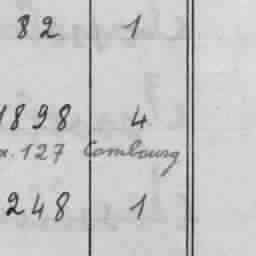 82 1
1898 4
x. 127 Combourg
248 1